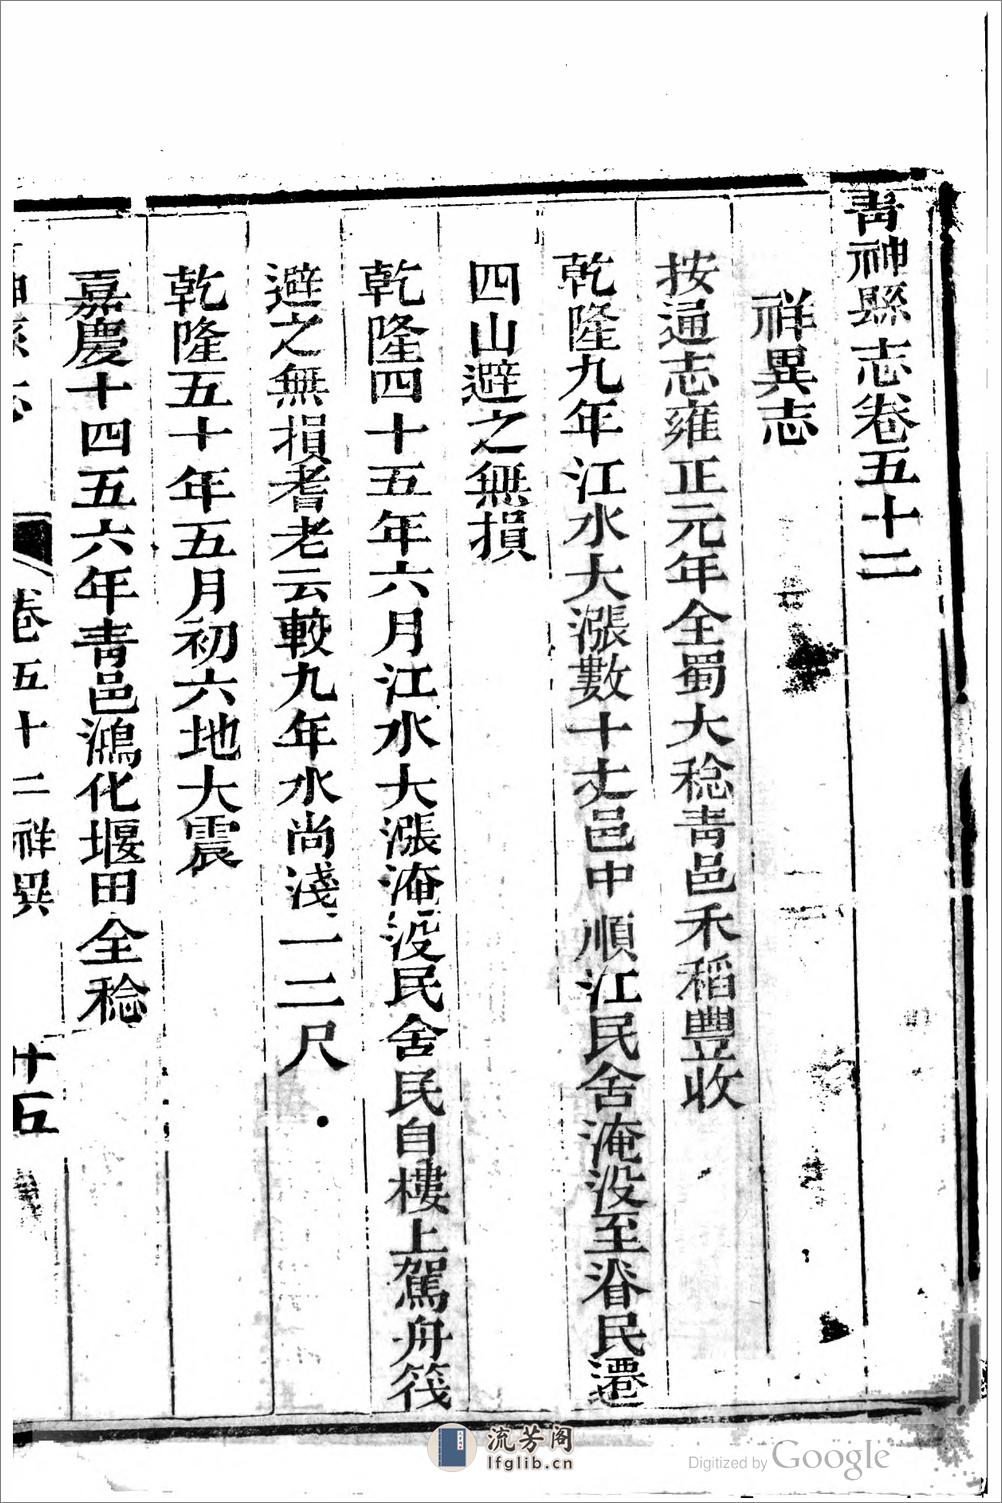 青神縣志卷五十二
祥異志
按通志雍正元年全蜀大稔青邑禾稻豐收
乾隆九年江水大漲數十丈邑中順江民舍淹没至脊民遷
四山避之無損
乾隆四十五年六月江水大漲淹没民舍民自樓上駕舟筏
避之無損耆老云較九年水尚淺一二尺
乾隆五十年五月初六地大震
嘉慶十四五六年青邑鴻化堰田全稔
神縣志 卷五十二祥異 十五
流芳阁
lfglib.cn
Digitized by Google